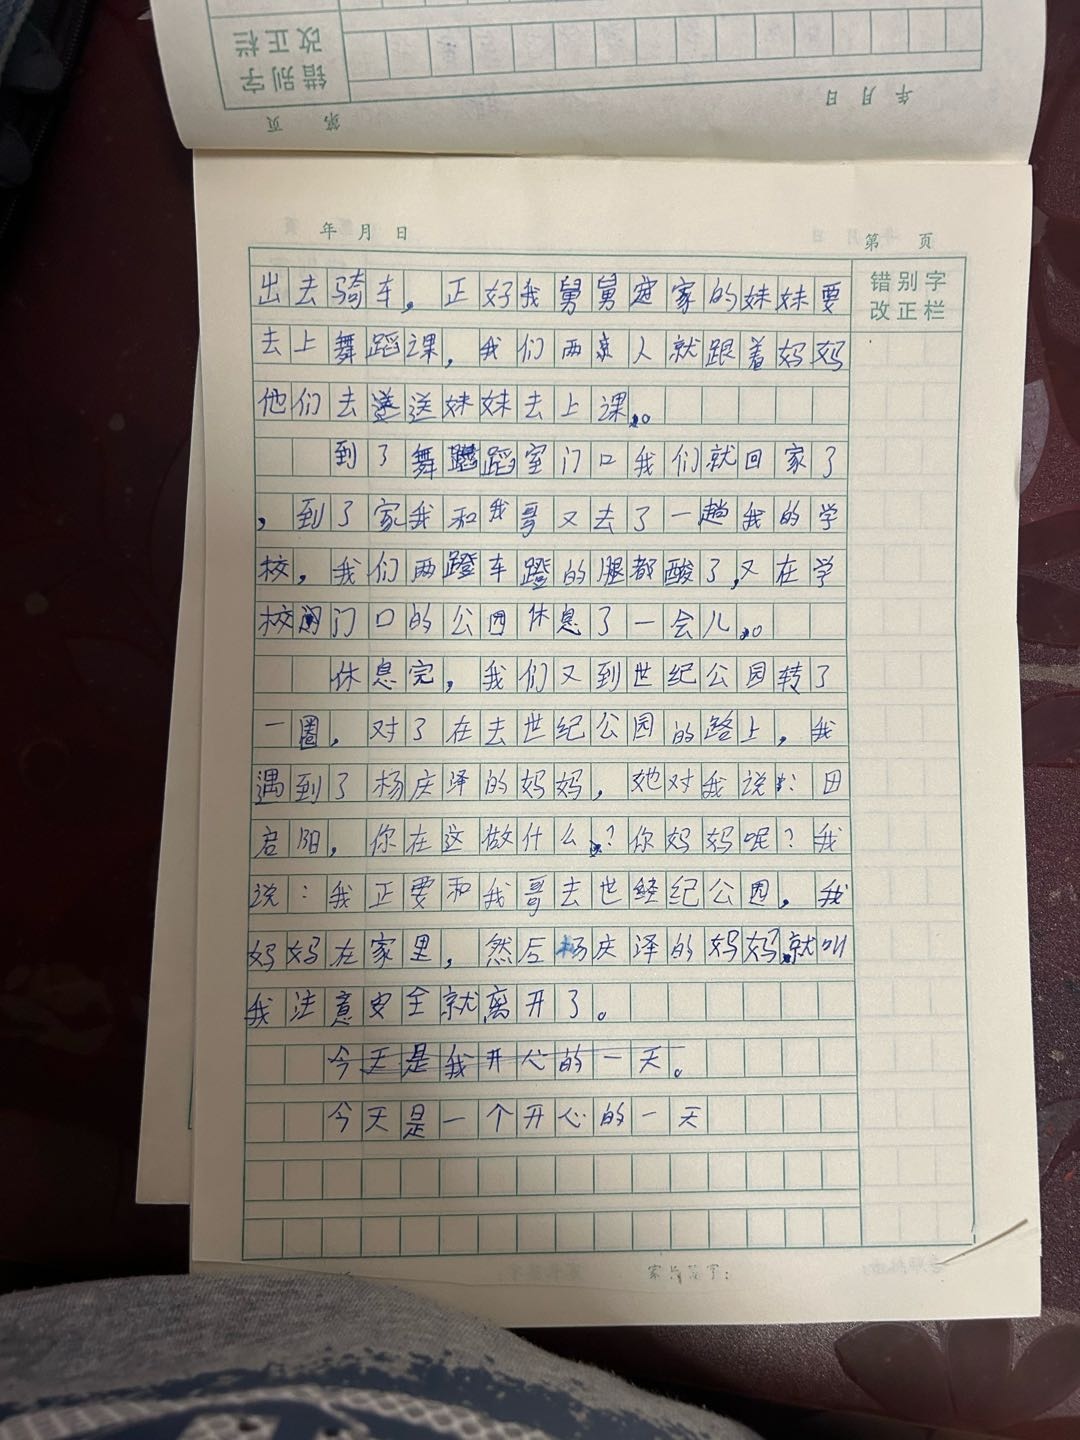 错别字
改正栏
年 月 日
第 页
年 月 日
第 页
错别字
改正栏
出去骑车，正好我舅舅家的妹妹要
去上舞蹈课，我们两人就跟着妈妈
他们去送妹妹去上课。
到了舞蹈室门口我们就回家了
，到了家我和我哥又去了一趟我的学
校，我们两蹬车蹬的腿都酸了，又在学
校门口的公园休息了一会儿。
休息完，我们又到世纪公园转了
一圈，对了在去世纪公园的路上，我
遇到了杨庆泽的妈妈，她对我说：田
启阳，你在这做什么？你妈妈呢？我
说：我正要和我哥去世纪公园，我
妈妈在家里，然后杨庆泽的妈妈就叫
我注意安全就离开了。
今天是我开心的一天。
今天是一个开心的一天
家长签字：